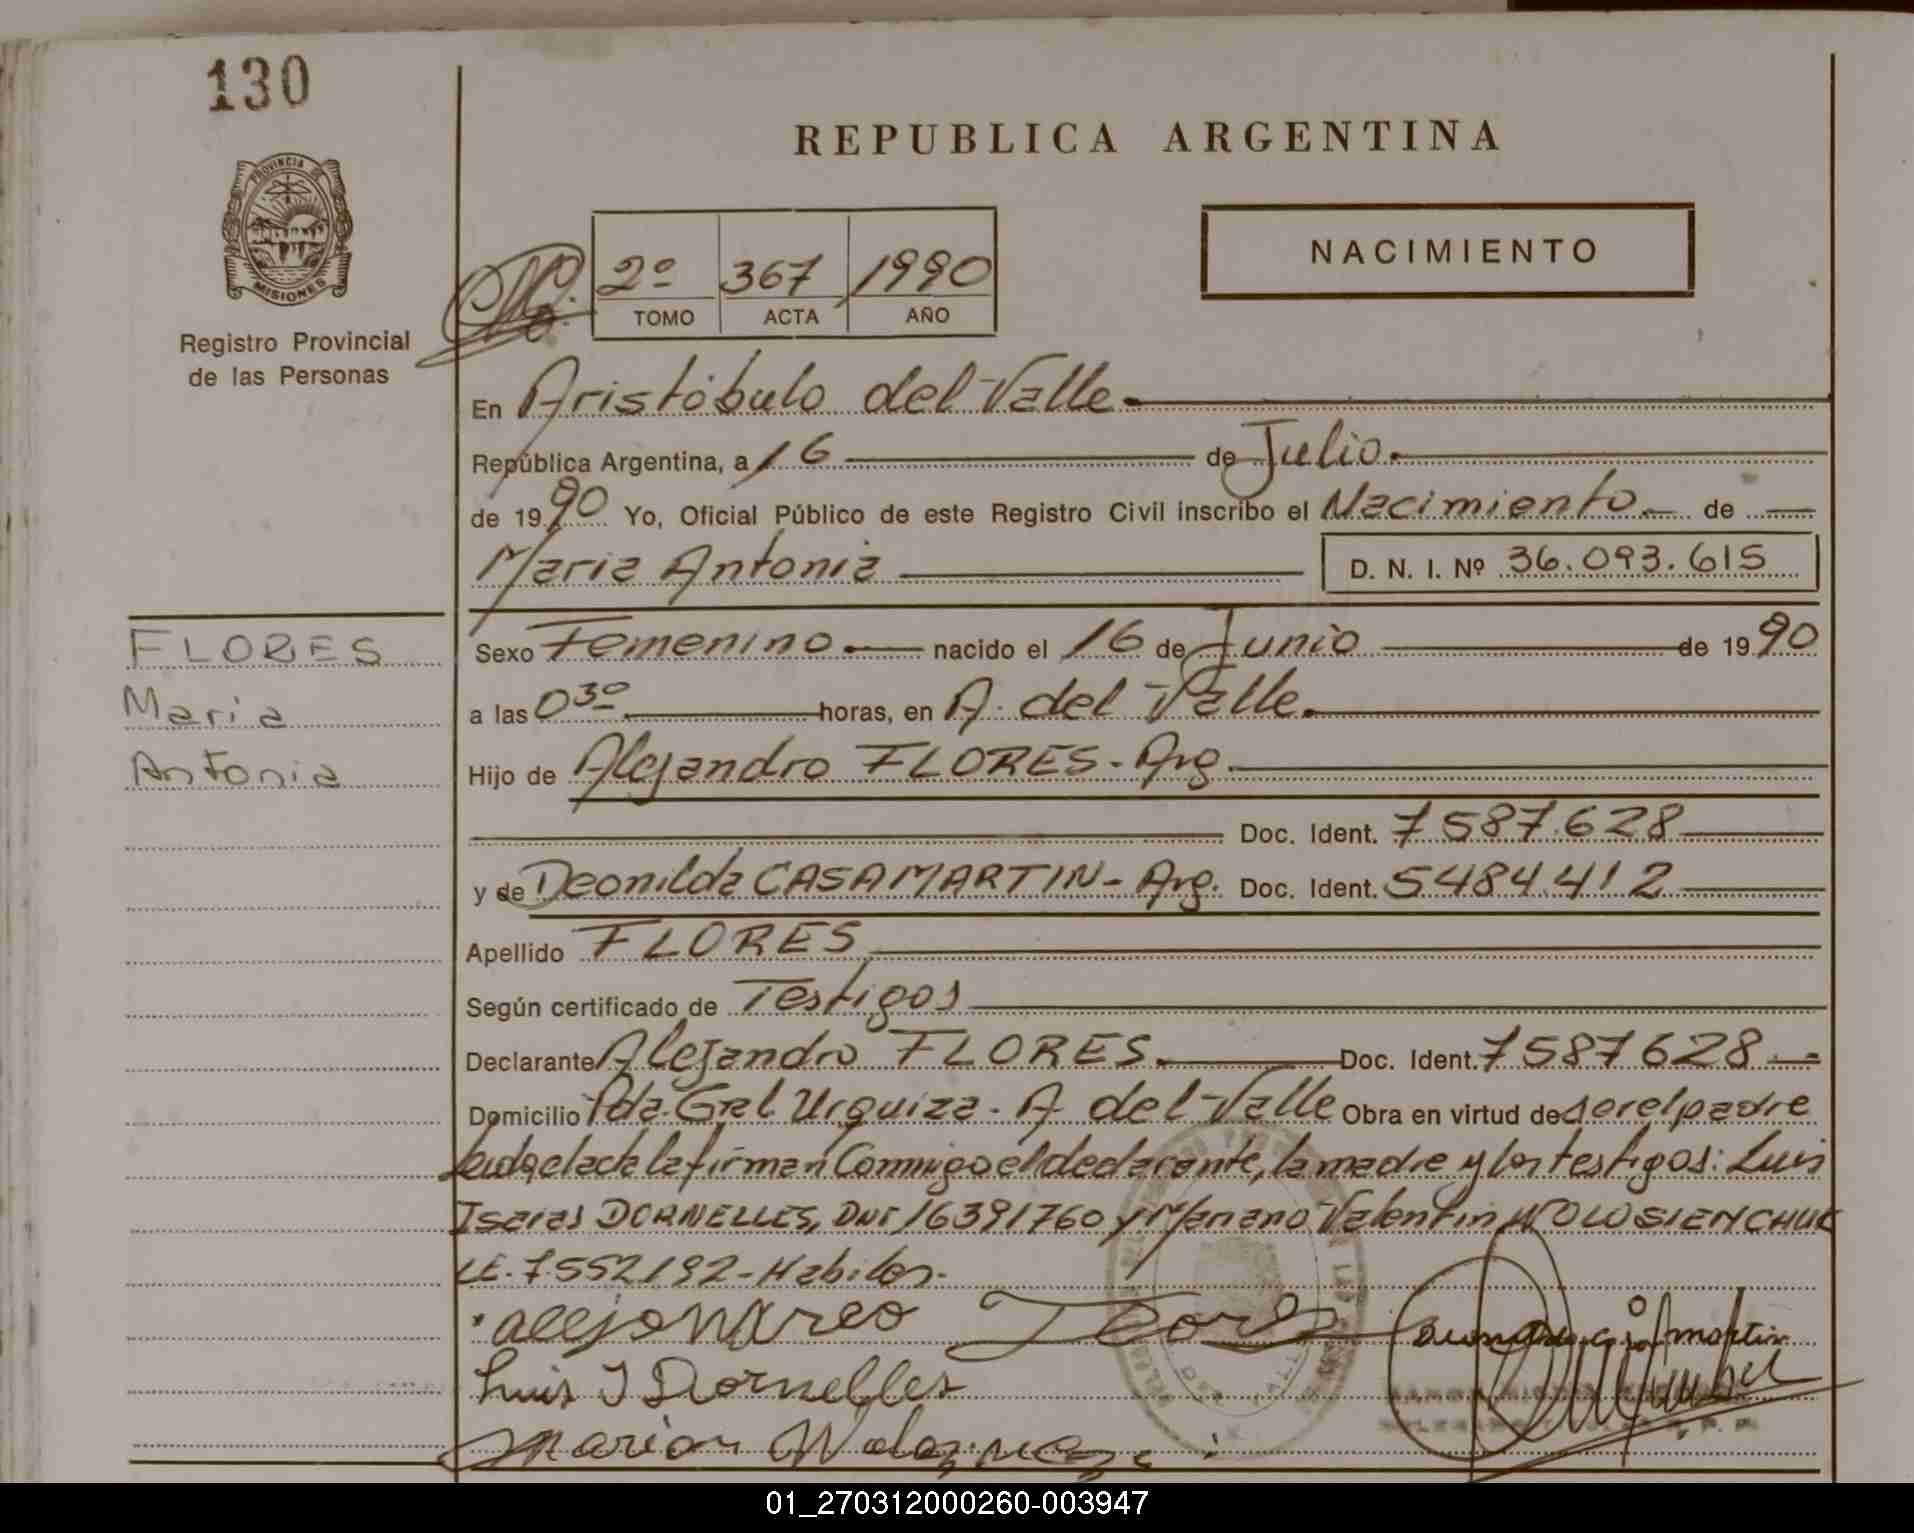 130
REPUBLICA ARGENTINA
PROVINCIA DE
MISIONES
Registro Provincial
de las Personas
NACIMIENTO
2º 367 1990
TOMO ACTA AÑO
En Aristóbulo del Valle.
República Argentina, a 16 de Julio.
de 1990 Yo, Oficial Público de este Registro Civil inscribo el Nacimiento de
Maria Antonia D. N. I. Nº 36.093.615
FLORES
Maria
Antonia
Sexo Femenino. nacido el 16 de Junio de 1990
a las 03º horas, en A. del Valle.
Hijo de Alejandro FLORES - Arg.
Doc. Ident. 7587.628
y de Deonilda CASAMARTIN - Arg. Doc. Ident. 5484.412
Apellido FLORES
Según certificado de Testigos
Declarante Alejandro FLORES. Doc. Ident. 7587628
Domicilio Pda. Gral. Urquiza - A. del Valle Obra en virtud de ser el padre
leida el acta la firman Conmigo el declarante, la madre y los testigos: Luis
Isaias DORNELLES, DNI 16391760 y Mariano Valentin WOLOSIENCHUK
LE. 7.552192 - Habiles.
alejandreo Flores
Luis I Dornelles
01_270312000260-003947